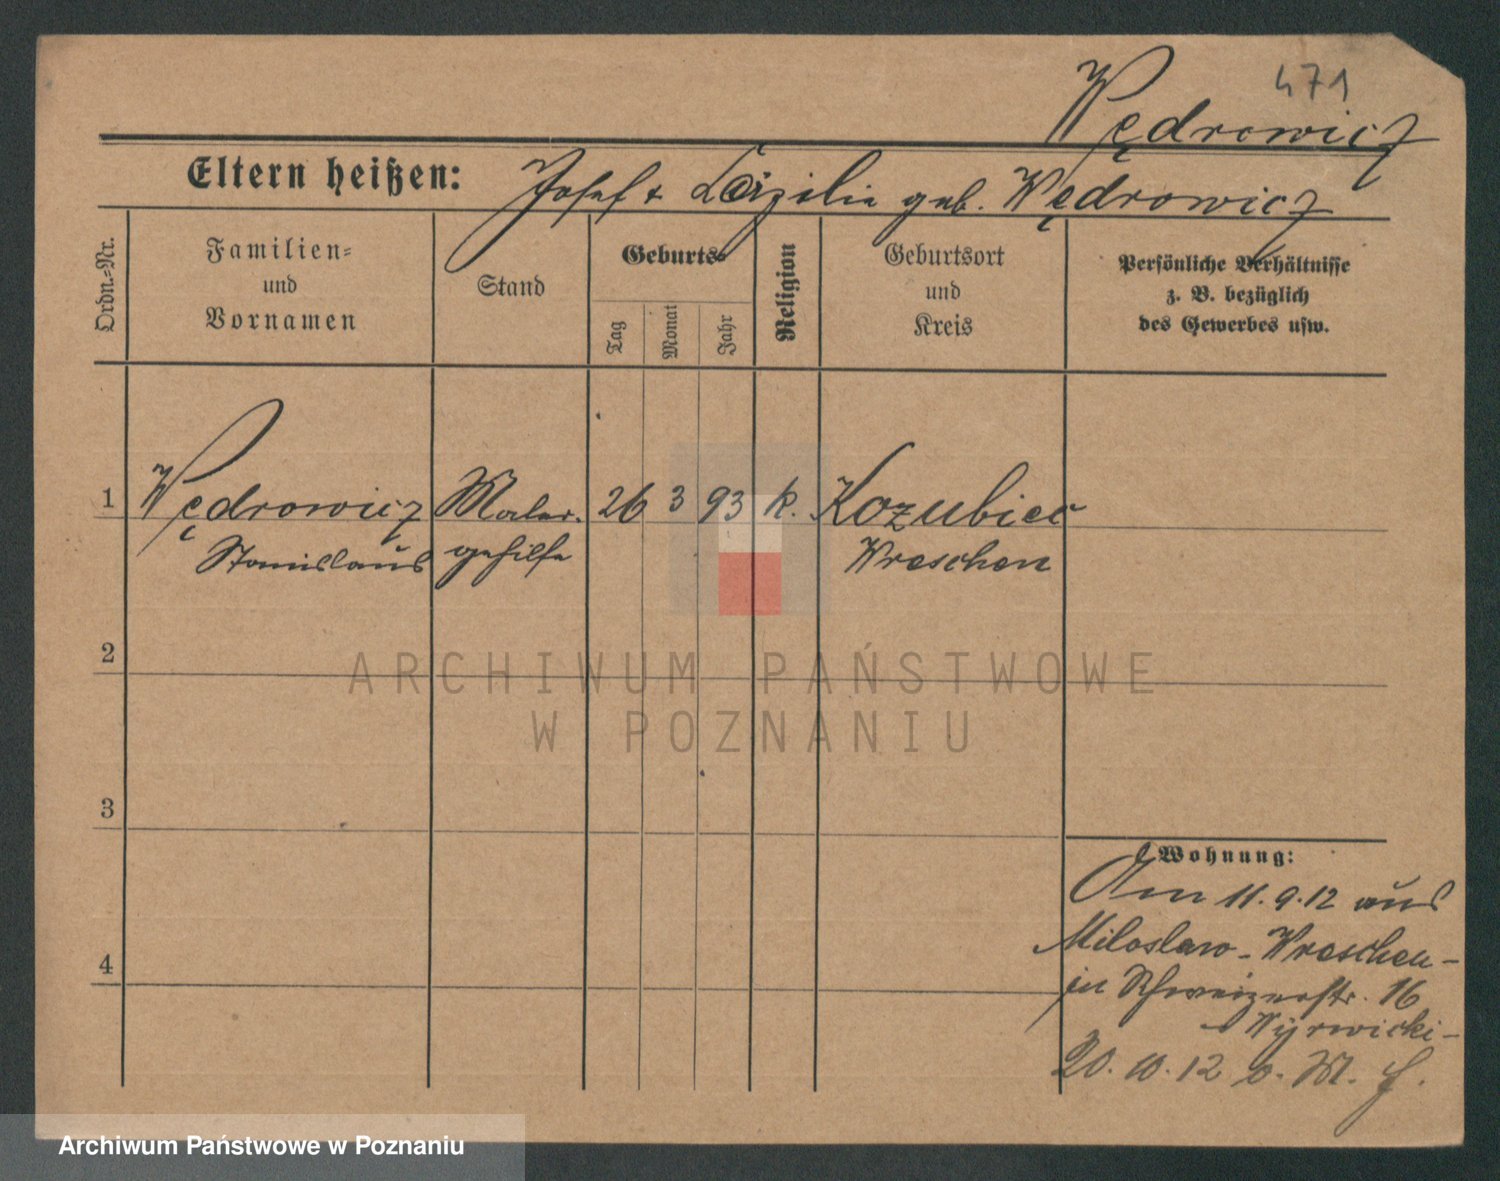 471
Wędrowicz
Eltern heißen: Josef & Cäzilie geb. Wędrowicz
Ordn.=Nr.
Familien=
und
Vornamen
Stand
Geburts=
Tag
Monat
Jahr
Religion
Geburtsort
und
Kreis
Persönliche Verhältnisse
z. B. bezüglich
des Gewerbes usw.
1 Wędrowicz Maler- 26 3 93 k. Kozubiec
Stanislaus gehilfe Wreschen
2
ARCHIWUM PAŃSTWOWE
W POZNANIU
3
Wohnung:
Am 11.9.12 aus
Miloslaw - Wreschen -
in Schweizerstr. 16
- Wyrwicki -
4
20. 10. 12 o. M. f.
Archiwum Państwowe w Poznaniu